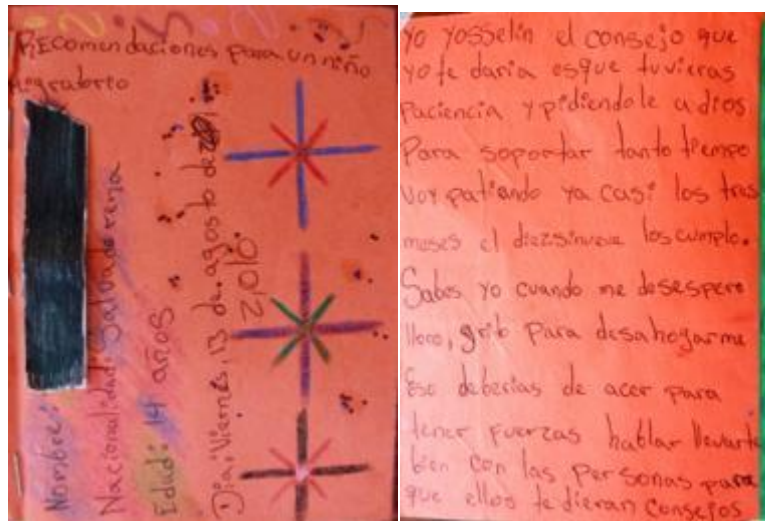 Recomendaciones para un niño
migratorio
Nombre:
Nacionalidad: Salvadoreña
Edad: 14 años
Dia, Viernes, 13 de agosto de
2,010
Yo Yosselin el consejo que
yo te daria esque tuvieras
Paciencia y pidiendole a dios
Para soportar tanto tiempo
Voy patiando ya casi los tres
meses el los cumplo.
Sabes yo cuando me desespero
lloro, grito para desahogarme
Eso deberias de acer para
tener fuerzas hablar llevarte
bien con las personas para
que ellos te dieran consejos